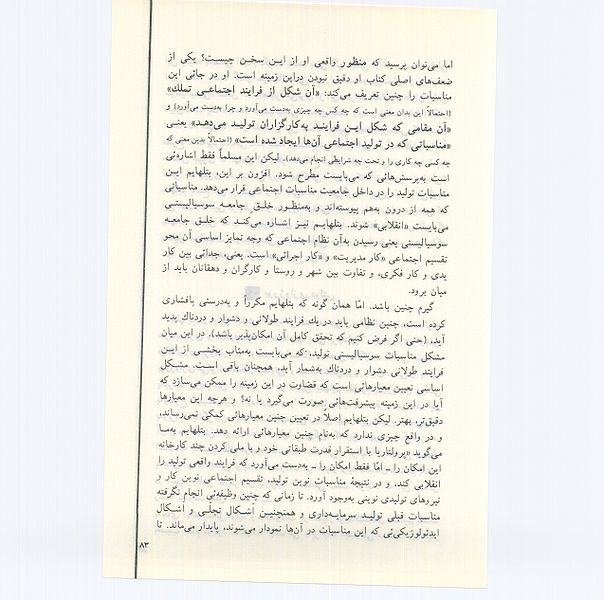 اما می‌توان پرسید که منظور واقعی او از ایـن سخـن چیسـت؟ یکی از
ضعف‌های اصلی کتاب او دقیق نبودن دراین زمینه است. او در جائی این
مناسبات را چنین تعریف می‌کند: «آن شکل از فرایند اجتماعـی تملك»
(احتمالاً این بدان معنی است که چه کس چه چیزی به‌دست می‌آورد و چرا به‌دست می‌آورد) و
«آن مقامی که شکل ایـن فراینـد به‌کارگزاران تولیـد می‌دهـد» یعنـی
«مناسباتی که در تولید اجتماعی آن‌ها ایجاد شده است» (احتمالاً بدین معنی که
چه کسی چه کاری را و تحت چه شرایطی انجام می‌دهد). لیکن این مسلماً فقط اشاره‌ئی
است به‌پرسش‌هائی که می‌بایست مطرح شود. افزون بر این، بتلهایم این
مناسبات تولید را در داخل جامعیت مناسبات اجتماعی قرار می‌دهد. مناسباتی
که همه از درون به‌هم پیوسته‌اند و به‌منظـور خلـق جامعـه سوسیالیستـی
می‌بایست «انقلابی» شوند. بتلهایـم نیـز اشـاره می‌کنـد که خلـق جامعـه
سوسیالیستی یعنی رسیدن به‌آن نظام اجتماعی که وجه تمایز اساسی آن محو
تقسیم اجتماعی «کار مدیریت» و «کار اجرائی» است. یعنی، جدائی بین کار
یدی و کار فکری، و تفاوت بین شهر و روستا و کارگران و دهقانان باید از
میان برود.
گیرم چنین باشد. امّا همان گونه که بتلهایم مکرراً و به‌درستی پافشاری
کرده است، چنین نظامی باید در یك فرایند طولانی و دشوار و دردناك پدید
آید، (حتی اگر فرض کنیم که تحقق کامل آن امکان‌پذیر باشد). در این میان
مشکل مناسبات سوسیالیستی تولید، که می‌بایست به‌مثاب بخشـی از ایـن
فرایند طولانی دشوار و دردناك به‌شمار آید، همچنان باقی اسـت. مشـکل
اساسی تعیین معیارهایی است که قضاوت در این زمینه را ممکن می‌سازد که
آیا در این زمینه پیشرفت‌هائی صورت می‌گیرد یا نه؟ و هرچه این معیارها
دقیق‌تر، بهتر. لیکن بتلهایم اصلاً در تعیین چنین معیارهائی کمکی نمی‌رساند،
و در واقع چیزی ندارد که به‌نام چنین معیارهائی ارائه دهد. بتلهایم به‌مـا
می‌گوید «پرولتاریا با استقرار قدرت طبقاتی خود و با ملی کردن چند کارخانه
این امکان را ـ امّا فقط امکان را ـ به‌دست می‌آورد که فرایند واقعی تولید را
انقلابی کند، و در نتیجهٔ مناسبات نوین تولید، تقسیم اجتماعی نوین کار و
نیروهای تولیدی نوینی به‌وجود آورد. تا زمانی که چنین وظیفه‌ئی انجام نگرفته
مناسبات قبلی تولیـد سرمایـه‌داری و همچنیـن اشـکال تجلّـی و اشـکال
ایدئولوژیکی‌ئی که این مناسبات در آن‌ها نمودار می‌شوند، پایدار می‌ماند. تا
۸۳